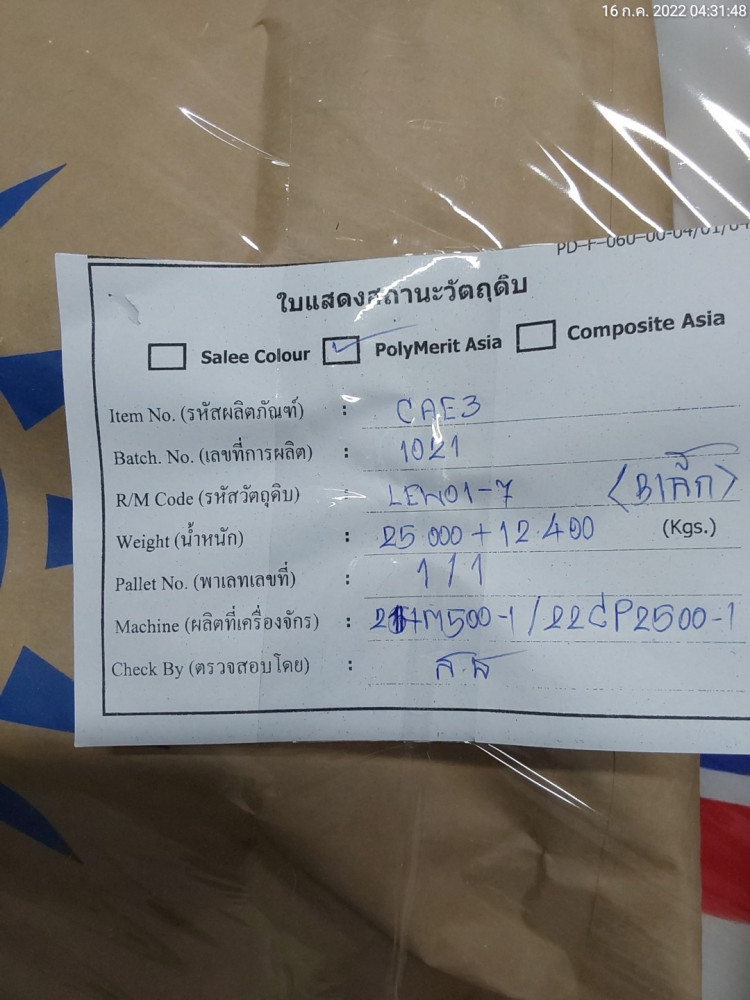 16 ก.ค. 2022 04:31:48
PD-F-060-00-04/01/64
ใบแสดงสถานะวัตถุดิบ
Salee Colour PolyMerit Asia Composite Asia
Item No. (รหัสผลิตภัณฑ์) : CAE3
Batch. No. (เลขที่การผลิต) : 1021
R/M Code (รหัสวัตถุดิบ) : LEN01-7
Weight (น้ำหนัก) : 25.000 + 12.400 (Kgs.)
Pallet No. (พาเลทเลขที่) : 1/1
Machine (ผลิตที่เครื่องจักร) : HM500-1/22CP2500-1
Check By (ตรวจสอบโดย) :